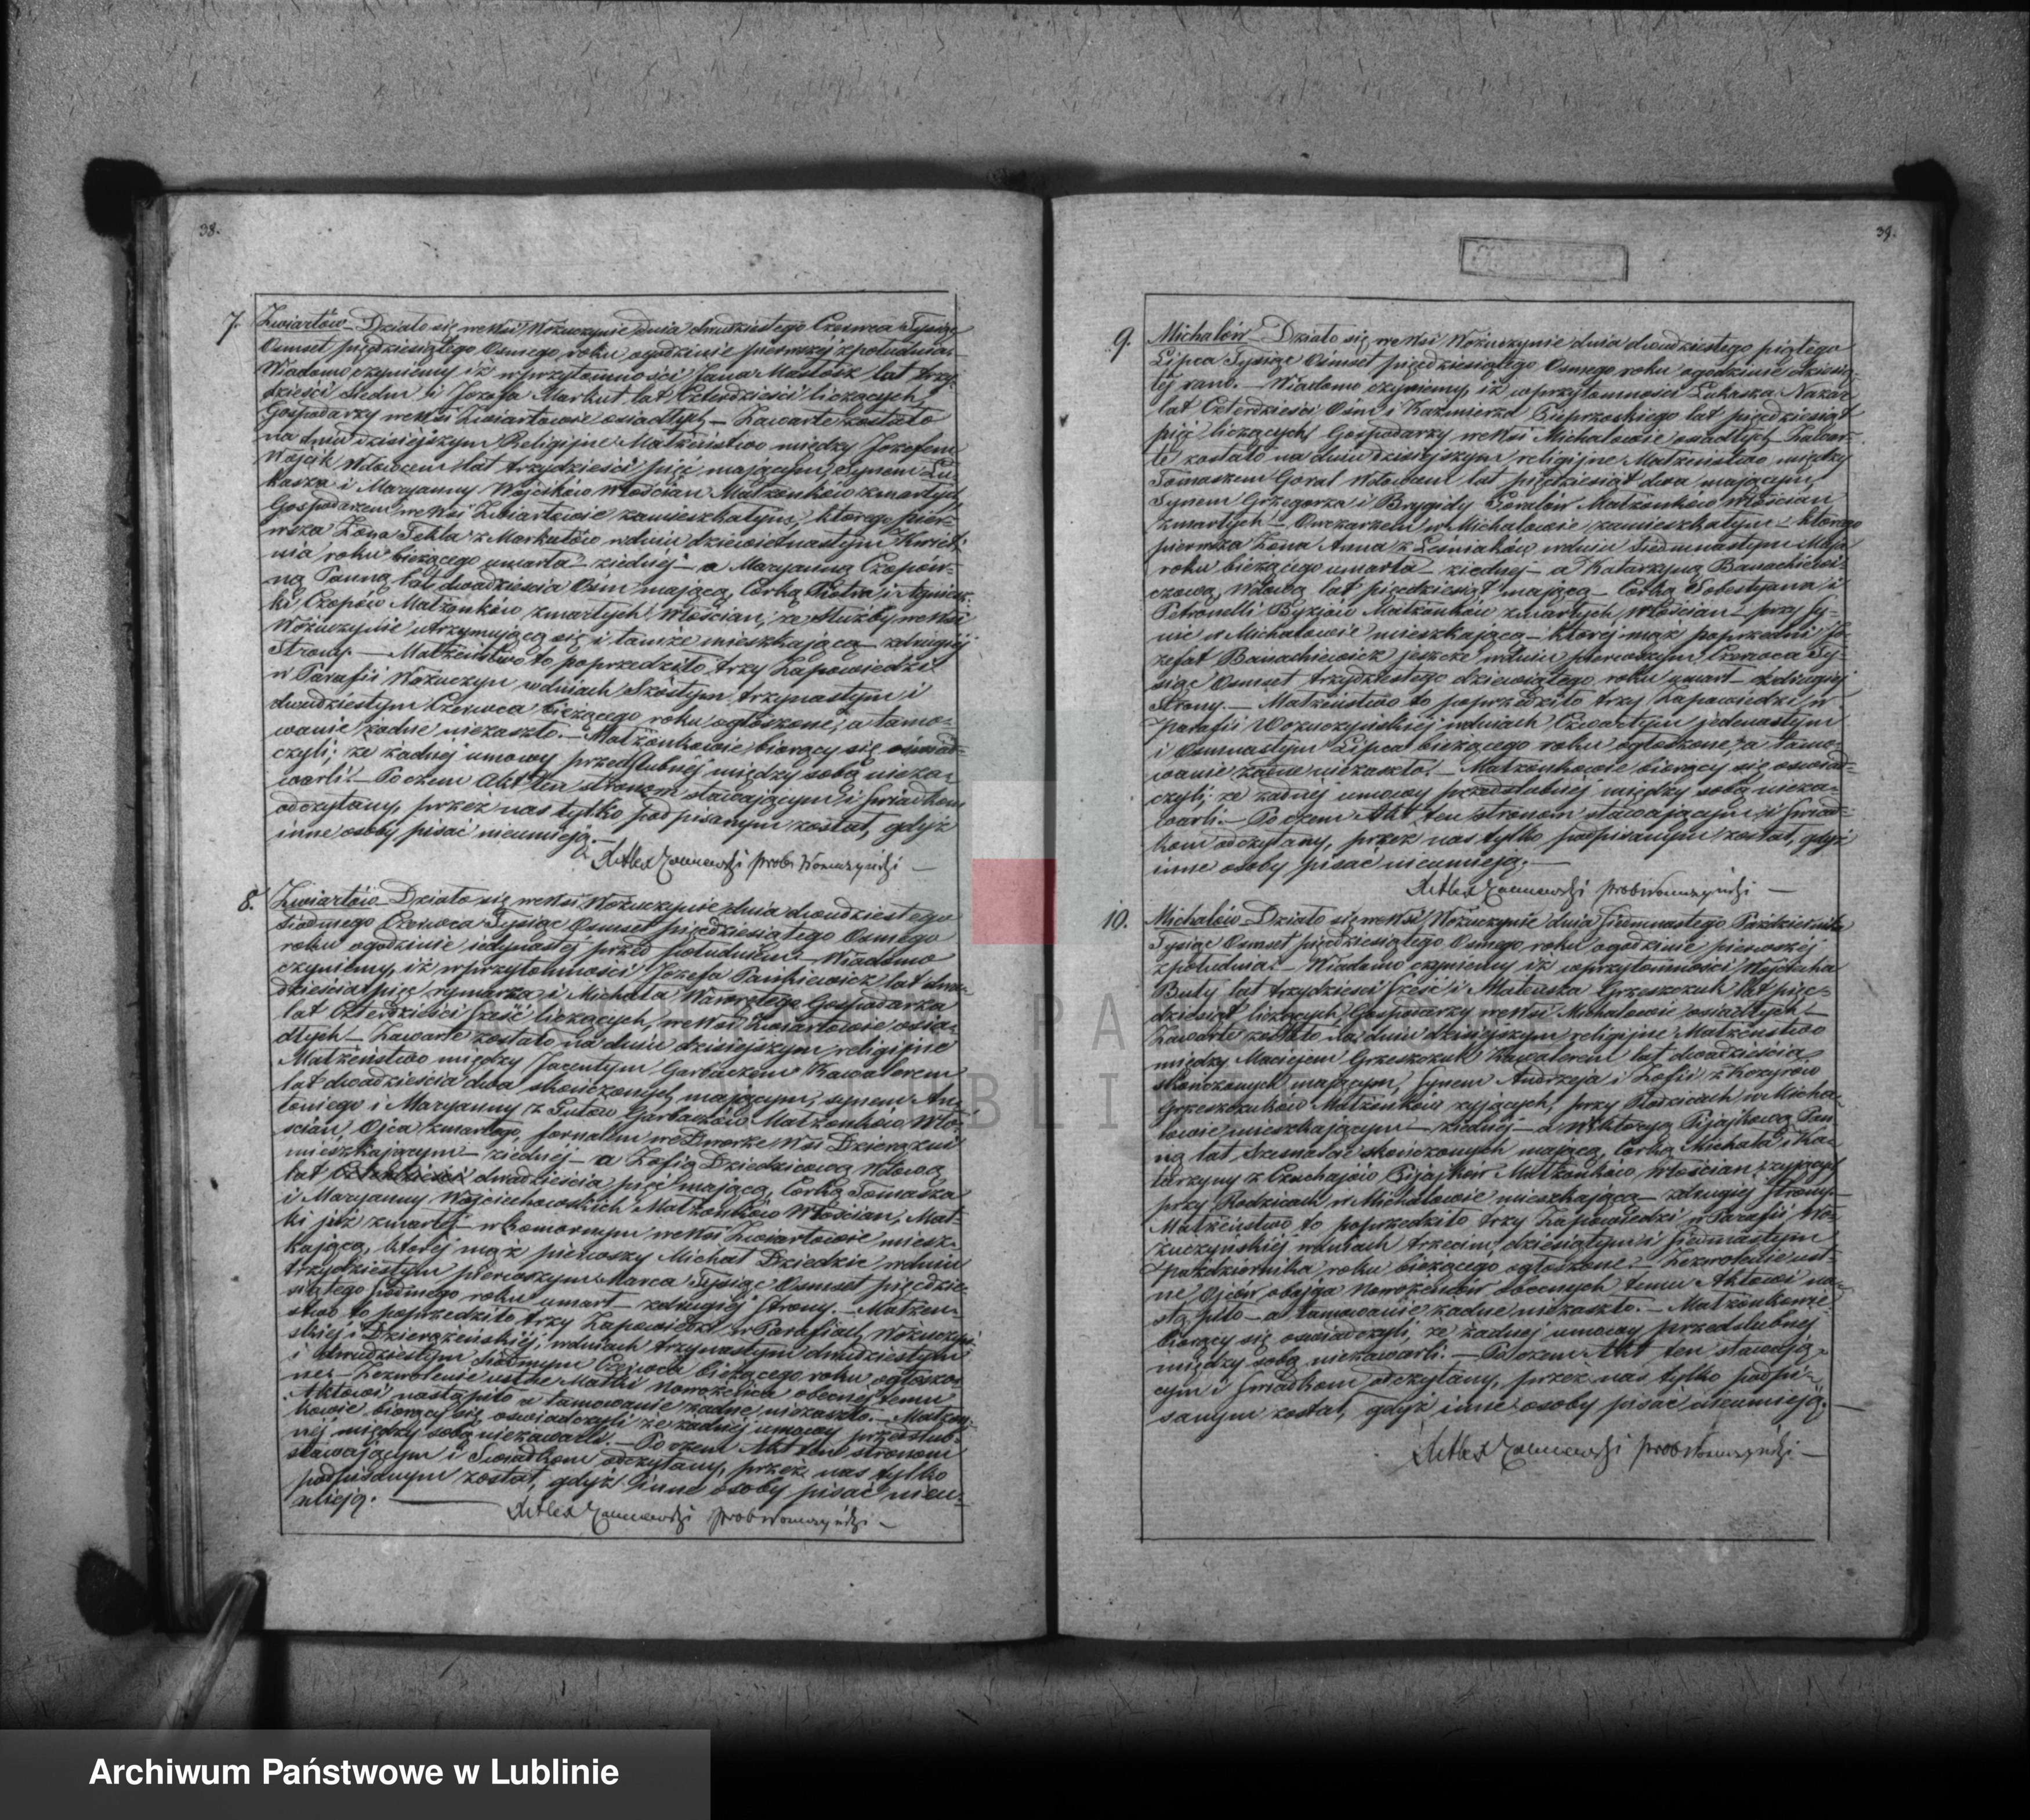 38.
7. Zwiartów Działo się we wsi Wożuczynie dnia dwudziestego Czerwca Tysiąc
Osmset pięćdziesiątego Osmego roku o godzinie pierwszej z południa.
Wiadomo czynimy iż w przytomności Jana Maślosz lat trzy-
dzieści siedm i Józefa Markut lat Czterdzieści liczących,
Gospodarzy we wsi Zwiartowie osiadłych – Zawarte zostało
na dniu dzisiejszym Religijne Małżeństwo między Józefem
Wójcik Wdowcem lat trzydzieści pięć mającym, Synem Łu-
kasza i Maryanny Wójcików Włościan Małżonków zmarłych
Gospodarzem we wsi Zwiartowie zamieszkałym, którego pier-
wsza Żona Tekla z Markutów w dniu dziewietnastym Kwiet-
nia roku bieżącego umarła – z jednéj – a Maryanną Czopów-
ną Panną lat dwadzieścia Ośm mającą, Córką Piotra i Agniesz-
ki Czopów Małżonków zmarłych Włościan, ze służby we wsi
Wożuczynie utrzymującą się i tamże mieszkającą – z drugiéj
Strony. – Małżeństwo to poprzedziło trzy Zapowiedzi
w Parafii Wożuczyn w dniach Szóstym, trzynastym i
dwudziestym Czerwca bieżącego roku ogłoszone, a tamo-
wanie żadne nie zaszło. – Małżonkowie biorący się oświad-
czyli, że żadnéj umowy przedślubnéj między sobą nieza-
warli. – Poczem Akt ten stronom stawającym i świadkom
odczytany, przez nas tylko podpisanym został, gdyż
inne osoby pisać nieumieją. –
8. Zwiartów Działo się we wsi Wożuczynie dnia dwudziestego
siódmego Czerwca Tysiąc Osmset pięćdziesiątego Osmego
roku o godzinie jedynastéj przed południem. – Wiadomo
czynimy, iż w przytomności Józefa Pańkiewicz lat dwa-
dzieścia pięć rymarza i Michała Wawrętego Gospodarza
lat Czterdzieści sześć liczących, we wsi Zwiartowie osia-
dłych – Zawarte zostało na dniu dzisiejszym religijne
Małżeństwo między Jacentym Garbaczem Kawalerem
lat dwadzieścia dwa skończonych mającym, synem An-
toniego i Maryanny z Gutów Garbaczów Małżonków Wło-
ścian, Ojca zmarłego, fornalem we Dworze Wsi Dzierążni
mieszkającym – z jednéj – a Zofią Dziedzicową Wdową
lat dwadzieścia pięć mającą, Córką Tomasza
i Maryanny Wojciechowskich Małżonków Włościan, Mat-
ki już zmarłéj – w komornym we wsi Zwiartowie miesz-
kającą, któréj mąż pierwszy Michał Dziedzic w dniu
trzydziestym pierwszym Marca Tysiąc Osmset pięćdzie-
siątego siódmego roku umarł – z drugiéj strony. – Małżeń-
stwo to poprzedziło trzy Zapowiedzi w Parafiach Wożuczyń-
skiéj i Dzierążeńskiéj, w dniach trzynastym dwudziestym
i dwudziestym siódmym Czerwca bieżącego roku ogłoszo-
ne. – Zezwolenie ustne Matki Nowożeńca obecnéj temu
Aktowi nastąpiło a tamowanie żadne niezaszło. – Małżon-
kowie biorący się oświadczyli że żadnéj umowy przedślub-
néj między sobą niezawarli. – Poczem Akt ten stronom
stawającym i Świadkom odczytany, przez nas tylko
podpisanym został, gdyż inne osoby pisać nieu-
mieją. –
39.
9. Michalów – Działo się we wsi Wożuczynie dnia dwudziestego piątego
Lipca Tysiąc Osmset pięćdziesiątego Osmego roku o godzinie dziesią-
téj rano. – Wiadomo czynimy, iż w przytomności Łukasza Nazar
lat Czterdzieści Ośm i Kazimierza Pieprzoskiego lat pięćdziesiąt
pięć liczących Gospodarzy we wsi Michalowie osiadłych Zawar-
te zostało na dniu dzisiejszym religijne Małżeństwo między
Tomaszem Goral Wdowcem lat pięćdziesiąt dwa mającym,
Synem Grzegorza i Brygidy Goralów Małżonków Włościan
zmarłych – Owczarzem w Michalowie zamieszkałym – którego
pierwsza Żona Anna z Leśniaków w dniu siedmnastym Maja
roku bieżącego umarła – z jednéj – a Katarzyną Banachiewi-
czową, Wdową lat pięćdziesiąt mającą – Córką Sebestyana i
Petronelli Byziów Małżonków zmarłych Włościan – przy Sy-
nie w Michalowie mieszkającą – któréj mąż poprzedni Jó-
zefat Banachiewicz jeszcze w dniu pierwszym Czerwca Ty-
siąc Osmset trzydziestego dziewiątego roku umarł – z drugiéj
Strony. – Małżeństwo to poprzedziło trzy Zapowiedzi w
Parafii Wożuczyńskiéj w dniach Czwartym jedenastym
i Osmnastym Lipca bieżącego roku ogłoszone, a tamo-
wanie żadne niezaszło. – Małżonkowie biorący się oświad-
czyli, że żadnéj umowy przedślubnéj między sobą nieza-
warli. – Poczem Akt ten stronom stawającym i świad-
kom odczytany, przez nas tylko podpisanym został, gdyż
inne osoby pisać nieumieją. –
10. Michalów – Działo się we wsi Wożuczynie dnia siedmnastego Października
Tysiąc Osmset pięćdziesiątego Osmego roku o godzinie pierwszéj
z południa. – Wiadomo czynimy iż w przytomności Wojciecha
Buły lat trzydzieści sześć i Mateusza Grzeszczuk lat pięć-
dziesiąt liczących Gospodarzy we wsi Michalowie osiadłych –
Zawarte zostało na dniu dzisiejszym religijne Małżeństwo
między Maciejem Grzeszczuk Kawalerem lat dwadzieścia
skończonych mającym, Synem Andrzeja i Zofii z Kozyrów
Grzeszczuków Małżonków żyjących, przy Rodzicach w Micha-
lowie mieszkającym – z jednéj – a Wiktoryą Pijajkową Pan-
ną lat szesnaście skończonych mającą, Córką Michała i Ka-
tarzyny z Czuchajów Pijajków Małżonków Włościan żyjących
przy Rodzicach w Michalowie mieszkającą – z drugiéj Strony –
Małżeństwo to poprzedziło trzy Zapowiedzi w Parafii Wo-
żuczyńskiéj w dniach trzecim, dziesiątym i siedmnastym
Października roku bieżącego ogłoszone. – Zezwolenie ust-
ne Ojców obojga Nowożeńców obecnych temu Aktowi na-
stąpiło – a tamowanie żadne niezaszło. – Małżonkowie
biorący się oświadczyli, że żadnéj umowy przedślubnéj
między sobą niezawarli. – Poczem Akt ten stawają-
cym i świadkom odczytany, przez nas tylko podpi-
sanym został, gdyż inne osoby pisać nieumieją. –
Archiwum Państwowe w Lublinie